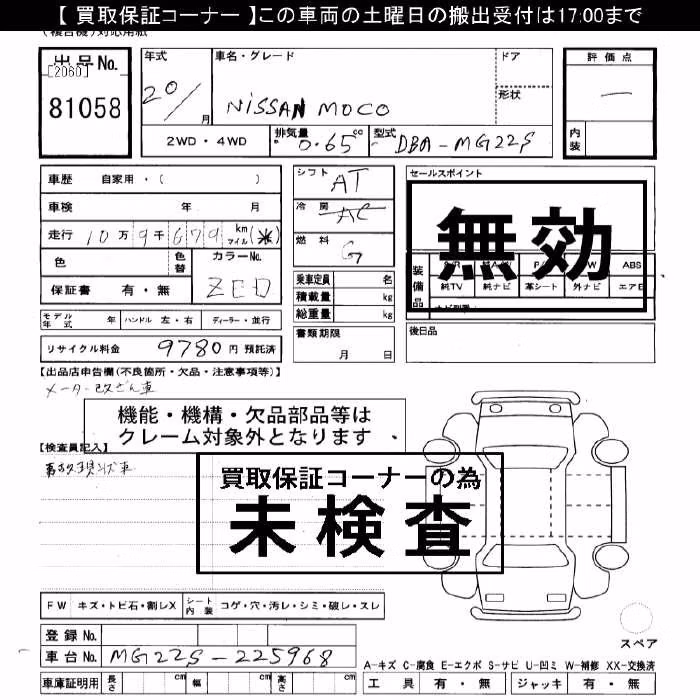 【 買取保証コーナー 】この車両の土曜日の搬出受付は17:00まで
(複合機)対応用紙
出品No.
[2060]
81058
年式
20/
月
車名・グレード
NISSAN MOCO
ドア
形状
評価点
—
内装
2WD・4WD
排気量
0.65 cc
型式
DBA-MG22S
車歴 自家用・( )
車検 年 月
走行 10万9千679 km マイル (※)
色
色替
カラーNo.
ZED
保証書 有・無
モデル年式 年
ハンドル 左・右
ディーラー・並行
リサイクル料金 9780円 預託済
シフト AT
冷房 AC
燃料 G
乗車定員 名
積載量 kg
総重量 kg
書類期限
月 日
セールスポイント
無効
装備品
S/R
P/S
P/W
ABS
純TV
純ナビ
革シート
外ナビ
エアB
後日品
【出品店申告欄(不良箇所・欠品・注意事項等)】
メーター改ざん車
機能・機構・欠品部品等は
クレーム対象外となります
【検査員記入】
事故現状車
買取保証コーナーの為
未検査
FW キズ・トビ石・割レX
シート内装 コゲ・穴・汚レ・シミ・破レ・スレ
登録No.
車台No. MG22S-225968
車庫証明用 長さ cm 幅 cm 高さ cm
スペア
A-キズ C-腐食 E-エクボ S-サビ U-凹ミ W-補修 XX-交換済
工具 有・無 ジャッキ 有・無